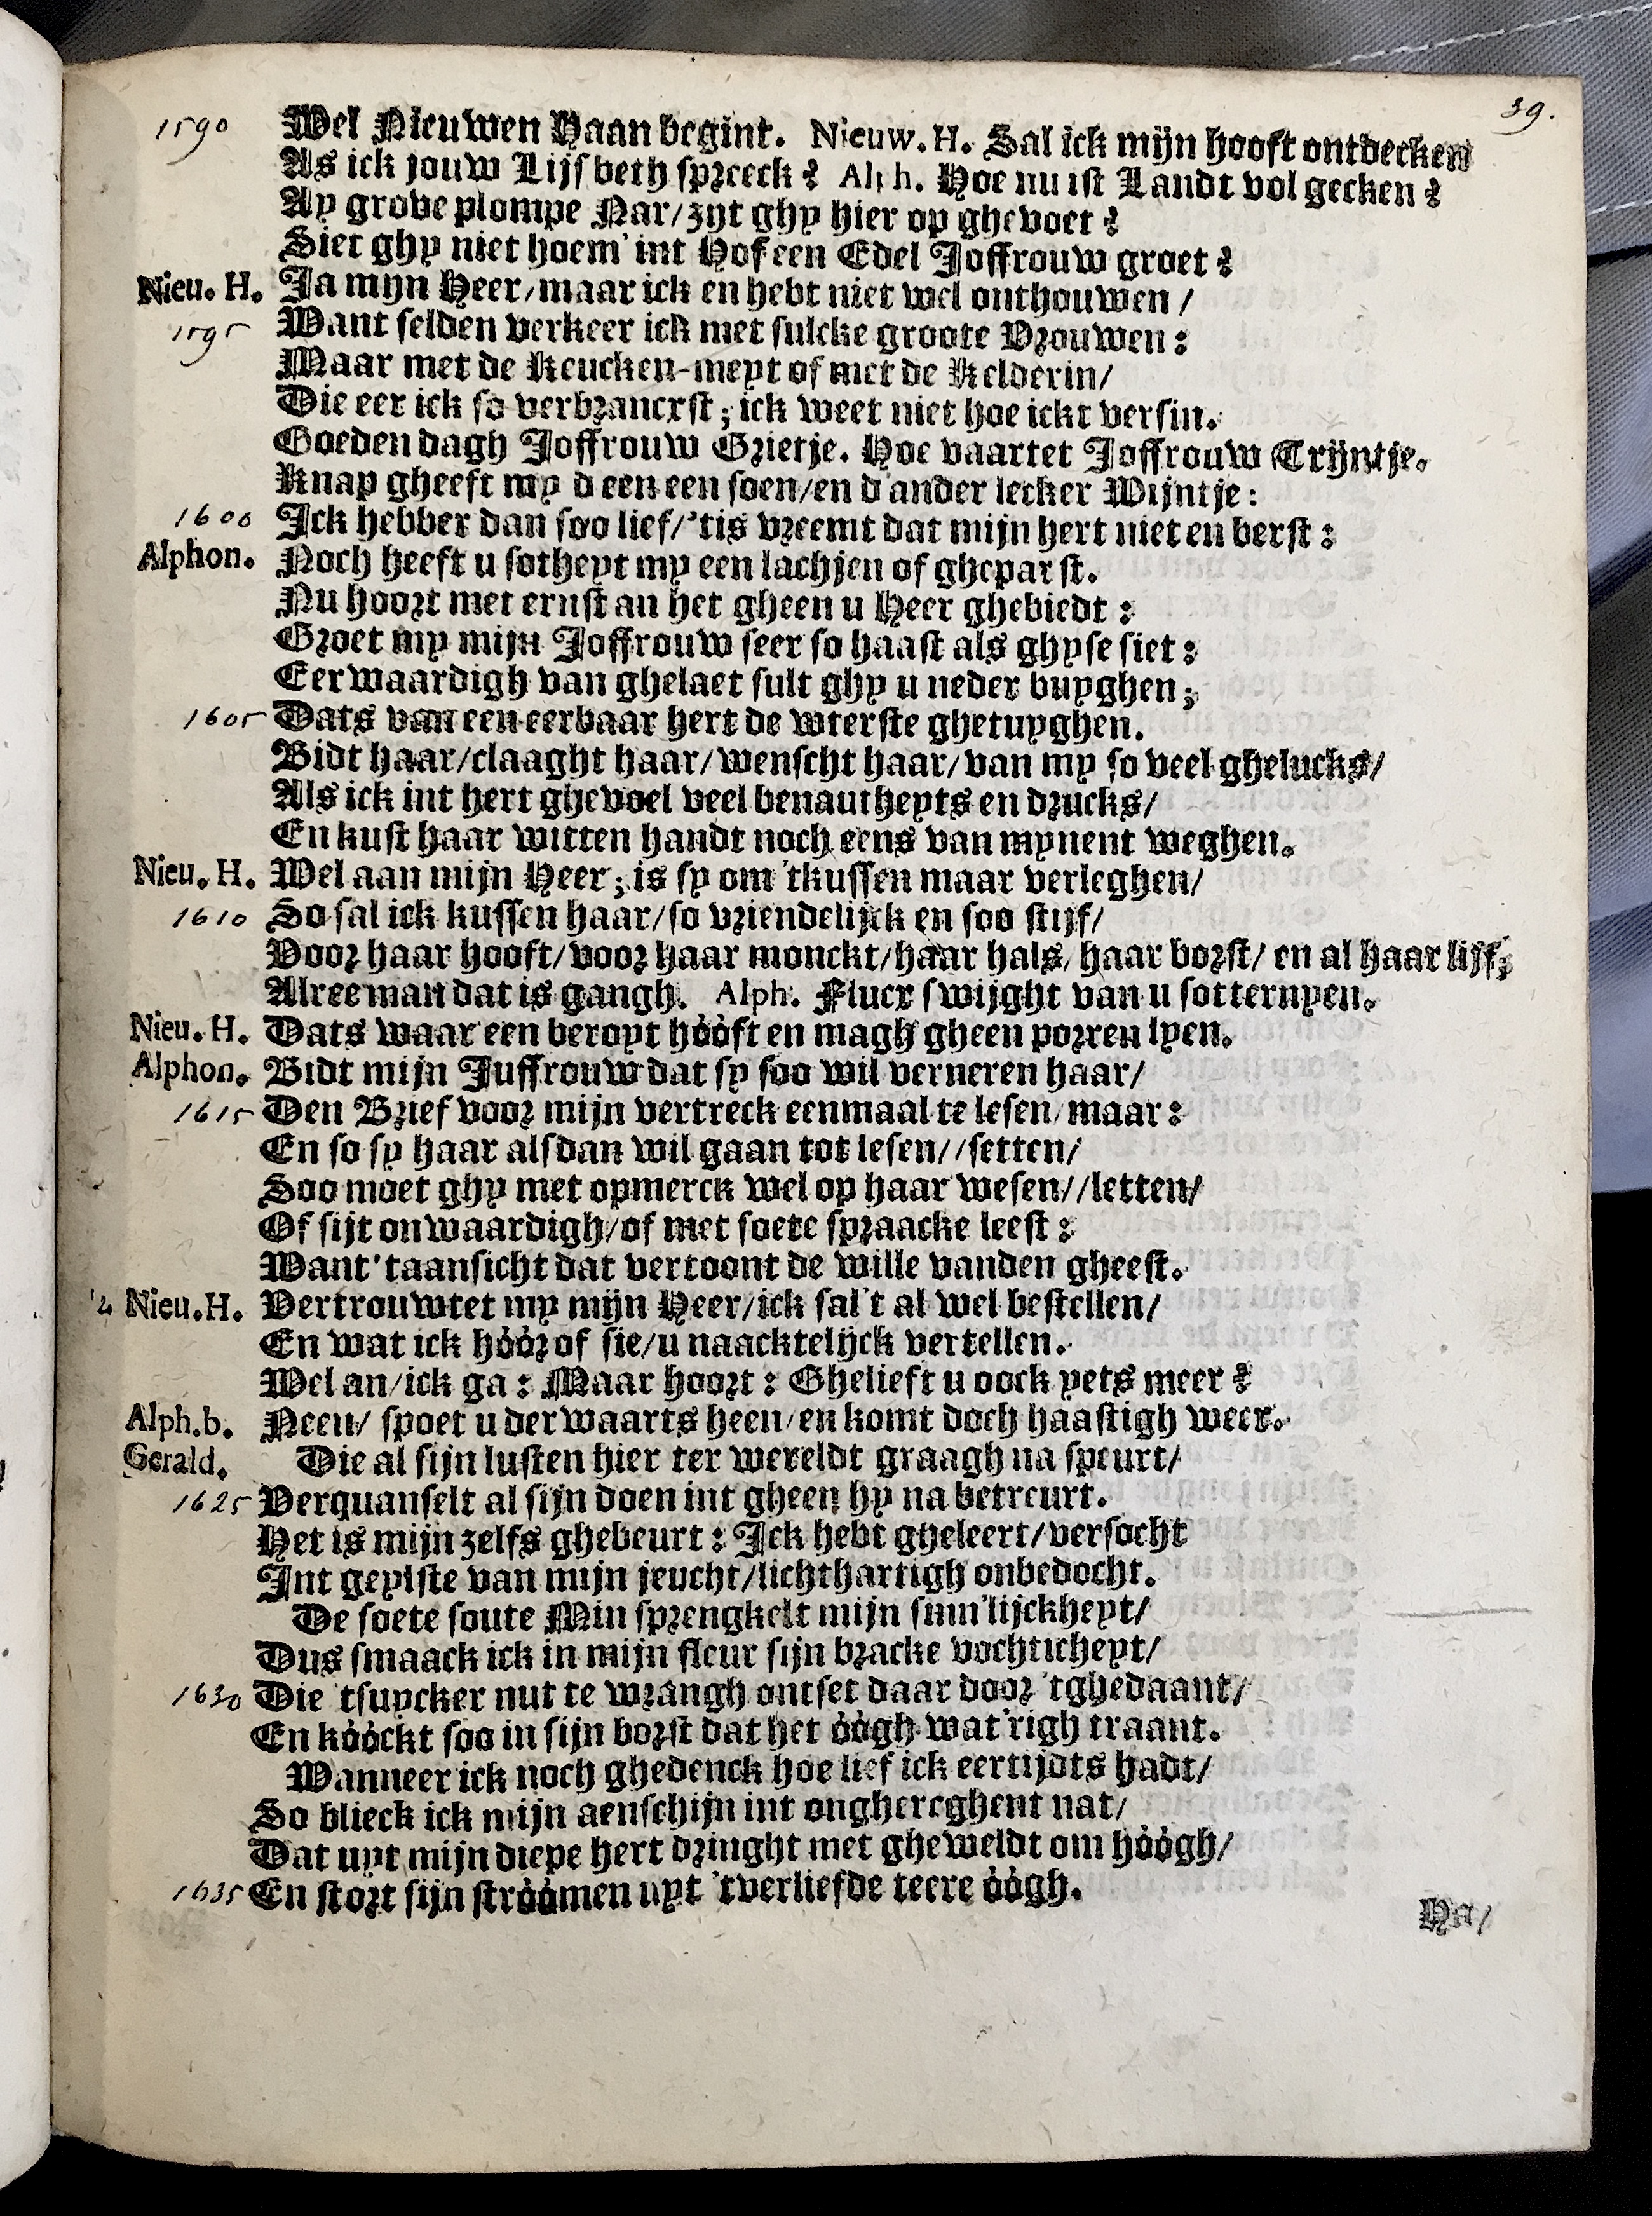 39.
1590 Wel Nieuwen Haan begint. Nieuw. H. Sal ick mijn hooft ontdecken
As ick jouw Lijsbeth spreeck? Alph. Hoe nu ist Landt vol gecken?
Ay grove plompe Nar/zyt ghy hier op ghevoet?
Siet ghy niet hoem' int Hof een Edel Joffrouw groet?
Nieu. H. Ja myn Heer/maar ick en hebt niet wel onthouwen/
1595 Want selden verkeer ick met sulcke groote Vrouwen:
Maar met de Keucken-meyt of met de Kelderin/
Die eer ick so verbrancxst; ick weet niet hoe ickt versin.
Goeden dagh Joffrouw Grietje. Hoe vaartet Joffrouw Trijntje.
Knap gheeft my d'een een soen/en d'ander lecker Wijntje:
1600 Ick hebber dan soo lief/'tis vreemt dat mijn hert niet en berst:
Alphon. Noch heeft u sotheyt my een lachjen of ghepar st.
Nu hoort met ernst an het gheen u Heer ghebiedt:
Groet my mijn Joffrouw seer so haast als ghyse siet:
Eerwaardigh van ghelaet sult ghy u neder buyghen;
1605 Dats van een eerbaar hert de wterste ghetuyghen.
Bidt haar/claaght haar/wenscht haar/van my so veel ghelucks/
Als ick int hert ghevoel veel benautheyts en drucks/
En kust haar witten handt noch eens van mynent weghen.
Nieu. H. Wel aan mijn Heer; is sy om 'tkussen maar verleghen/
1610 So sal ick kussen haar/so vriendelijck en soo stijf/
Voor haar hooft/voor haar monckt/haar hals/haar borst/ en al haar lijf;
Alree man dat is gangh. Alph. Flucx swijght van u sotternyen.
Nieu. H. Dats waar een beroyt hóóft en magh gheen porren lyen.
Alphon. Bidt mijn Juffrouw dat sy soo wil verneren haar/
1615 Den Brief voor mijn vertreck eenmaal te lesen/maar:
En so sy haar alsdan wil gaan tot lesen//setten/
Soo moet ghy met opmerck wel op haar wesen//letten/
Of sijt onwaardigh/of met soete spraacke leest:
Want 'taansicht dat vertoont de wille vanden gheest.
Nieu.H. Vertrouwtet my mijn Heer/ick sal't al wel bestellen/
En wat ick hóór of sie/u naacktelijck vertellen.
Wel an/ick ga: Maar hoort: Ghelieft u oock yets meer?
Alph.b. Neen/ spoet u derwaarts heen/en komt doch haastigh weer.
Gerald. Die al sijn lusten hier ter wereldt graagh na speurt/
1625 Verquanselt al sijn doen int gheen hy na betreurt.
Het is mijn zelfs ghebeurt: Ick hebt gheleert/versocht
Int geylste van mijn jeucht/lichthartigh onbedocht.
De soete soute Min sprengkelt mijn sinn'lijckheyt/
Dus smaack ick in mijn fleur sijn bracke vochticheyt/
1630 Die 'tsuycker nut te wrangh ontset daar door 'tghedaant/
En kóóckt soo in sijn borst dat het óógh wat'righ traant.
Wanneer ick noch ghedenck hoe lief ick eertijdts hadt/
So blieck ick mijn aenschijn int onghereghent nat/
Dat uyt mijn diepe hert dringht met gheweldt om hóógh/
1635 En stort sijn stróómen uyt 'tverliefde teere óógh.
Na/